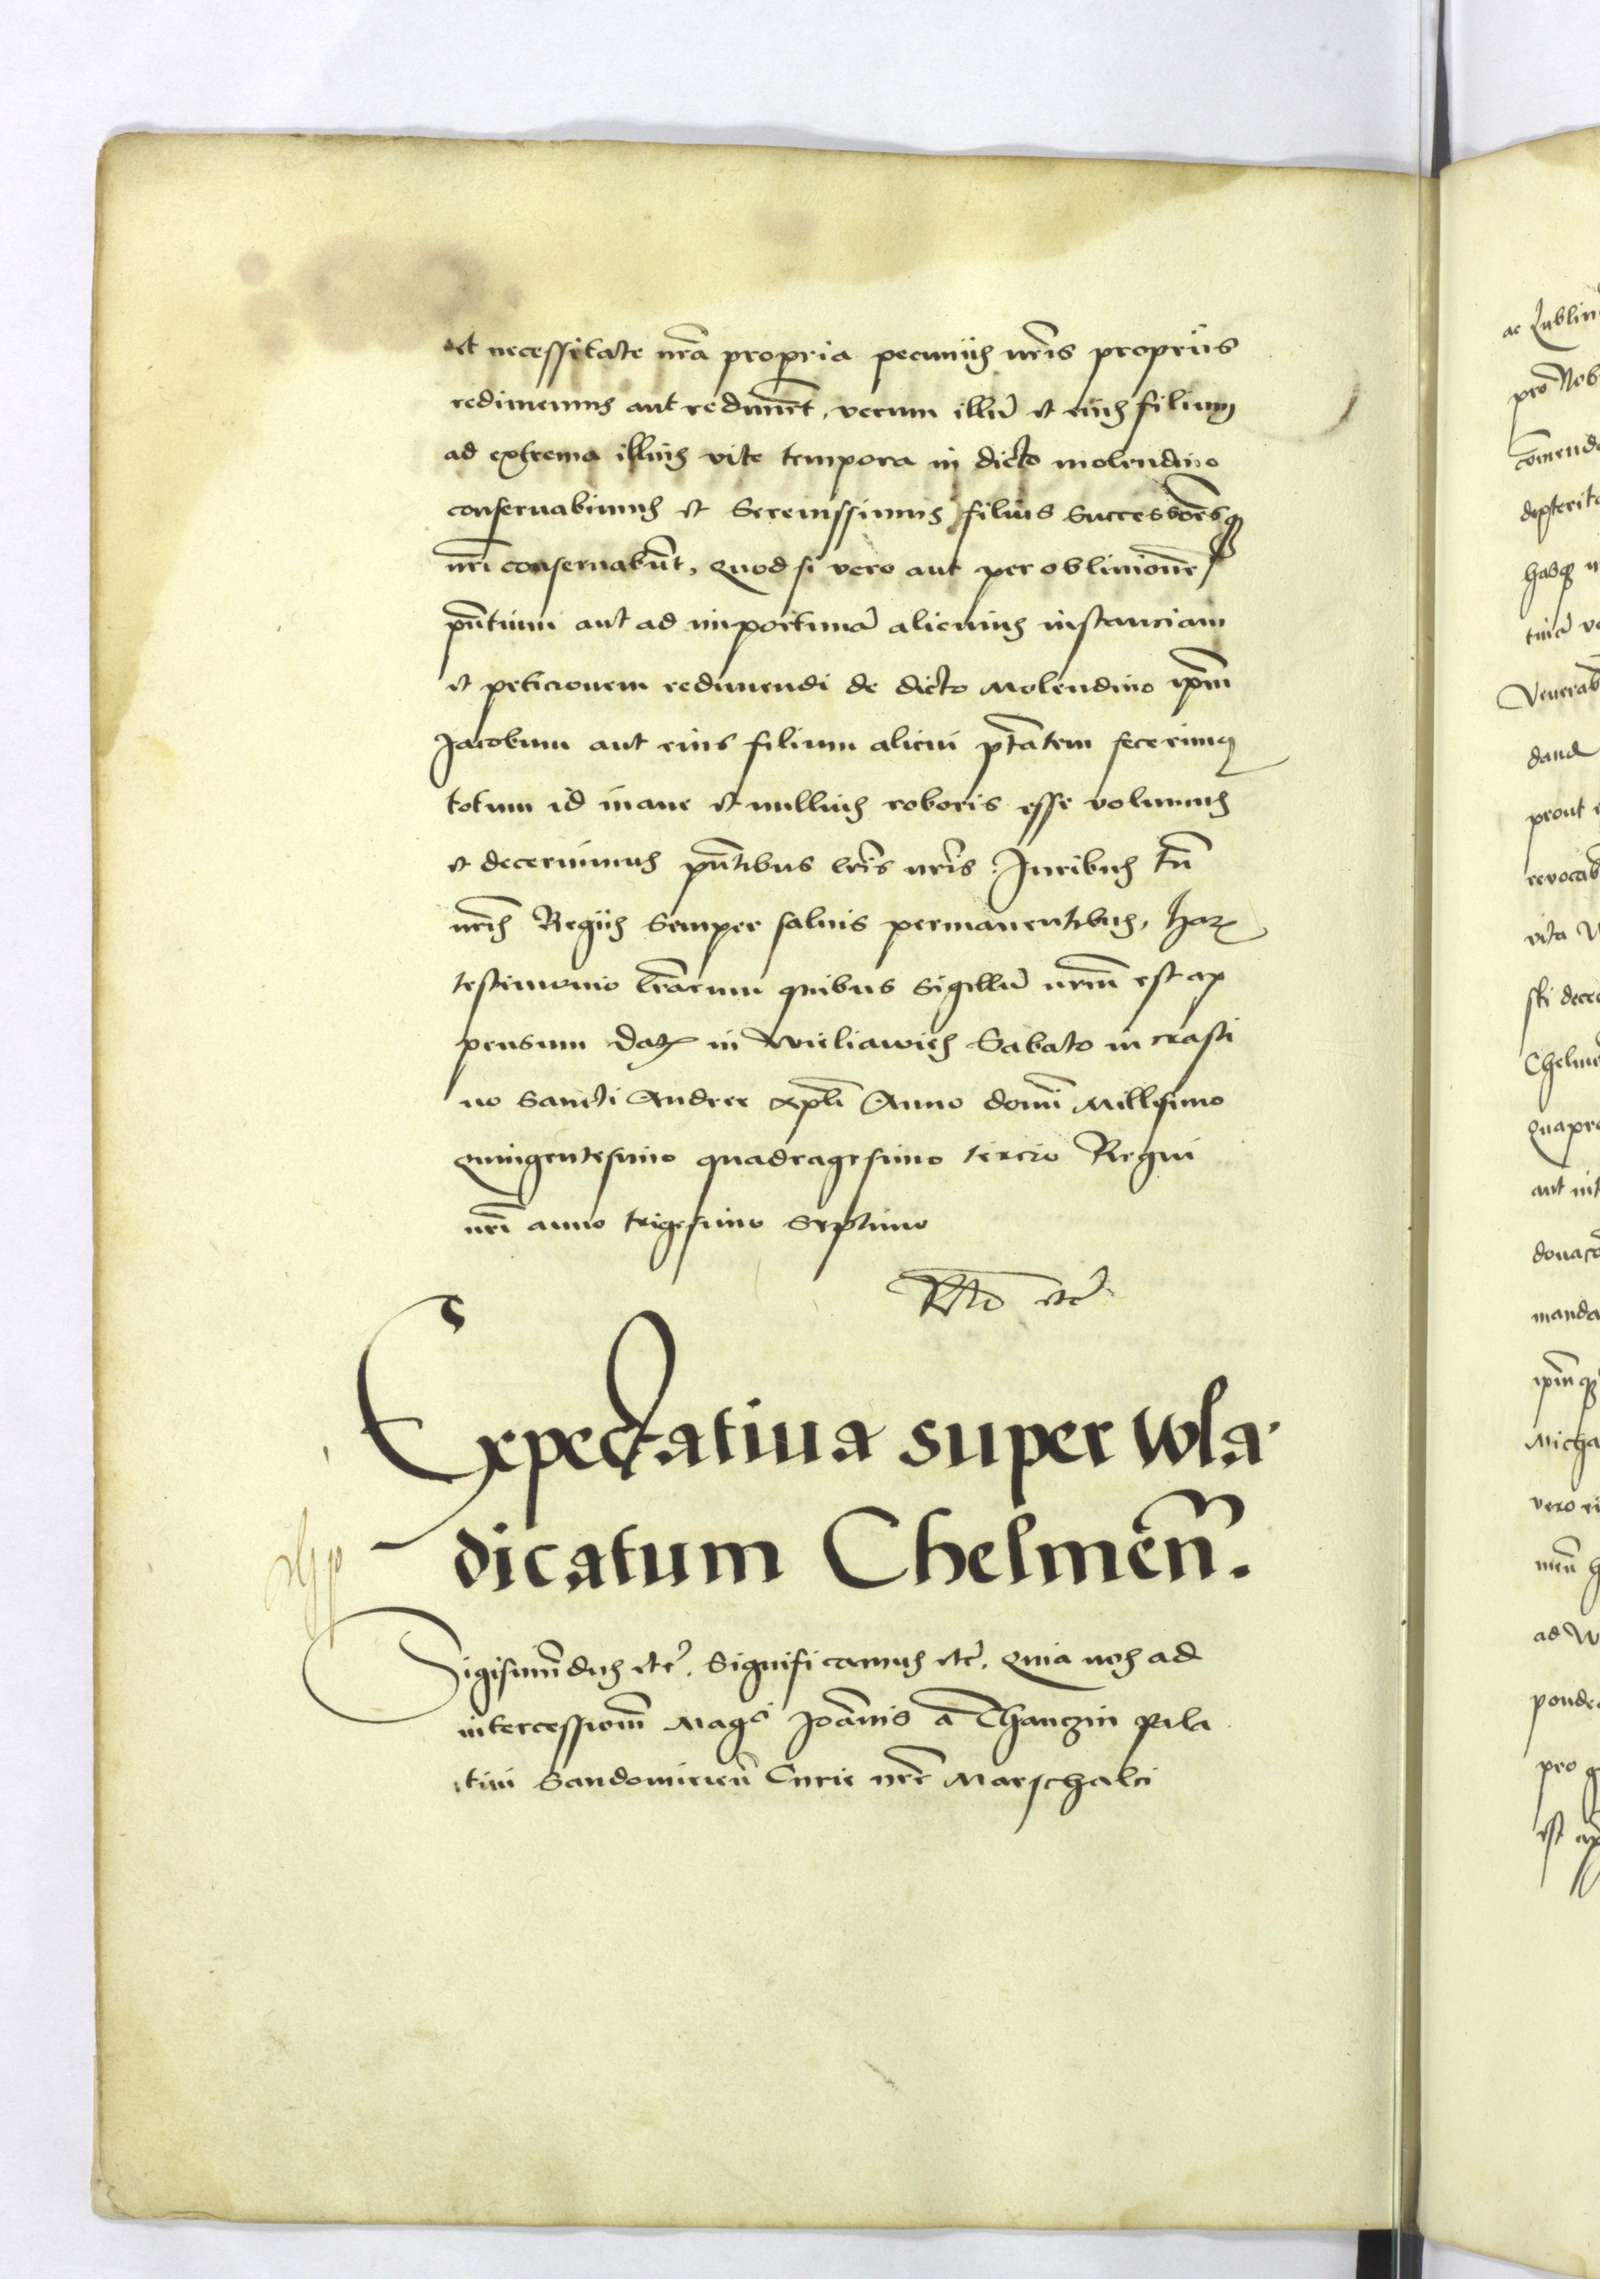 et necessitate nrã propria pecunijs nr̃is proprijs
redimemus aut rediment, verum illũ et eius filium
ad extrema illius vite tempora in dicto molendino
conseruabimus et Serenissimus filius Successoresq3
nr̃i conseruabũt, Quod si vero aut per obliuionẽ
pñtium aut ad importunã alicuius instanciam
et peticionem redimendi de dicto Molendino ipm̃
Jacobum aut eius filium alicui ptãtem fecerimus
totum id inane et nullius roboris esse volumus
et decernimus pñtibus lr̃is nr̃is. Juribus tñ
nr̃is Regijs Semper saluis permanentibus, Har
testimonio lr̃arum quibus Sigillũ nrm̃ est ap
pensum Dat in Wieliawies Sabato in crasti
no Sancti Andree Apli Anno domi Millesimo
quingentesimo quadragesimo tercio Regni
nr̃i anno trigesimo Septimo
Rtõ etc̃
Expectatiua super wla
dicatum Chelmeñ.
Sigismũdus etc̃. Significamus etc̃. Quia nos ad
intercessionẽ Magci Joãnis a Thanczin Pala
tini Sandomirieñ Curie nr̃e Marschalci
ac Lublin
pro Nob
cõmenda
dexterita
hasq3 
tuicũ
Venerab
dand
prout
revocab
vita
ski dece
Chelme
Quapro
aut int
donaçõ
manda
ipm̃q3
Micha
vero ei
meñ
ad W
ponde
pro g
est ap